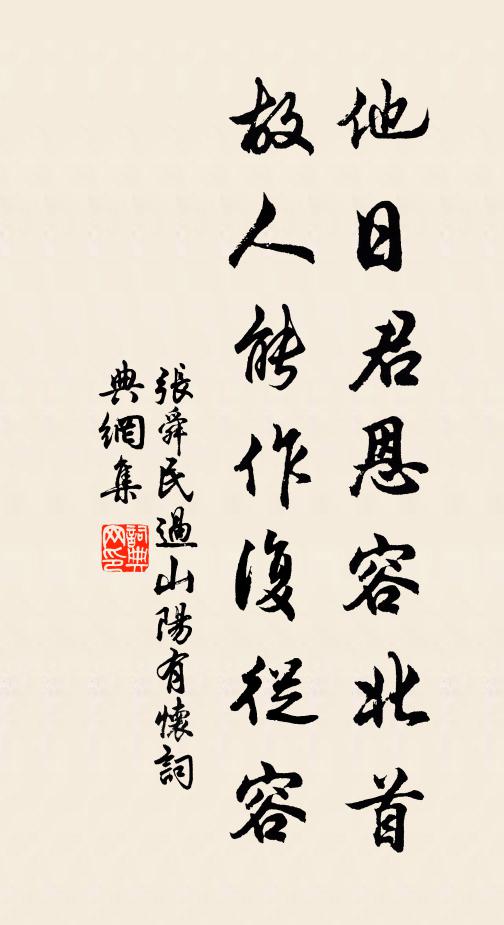 他日君恩容北首
故人能作復從容
張舜民過山陽有懷詞
典網集
詞典網印